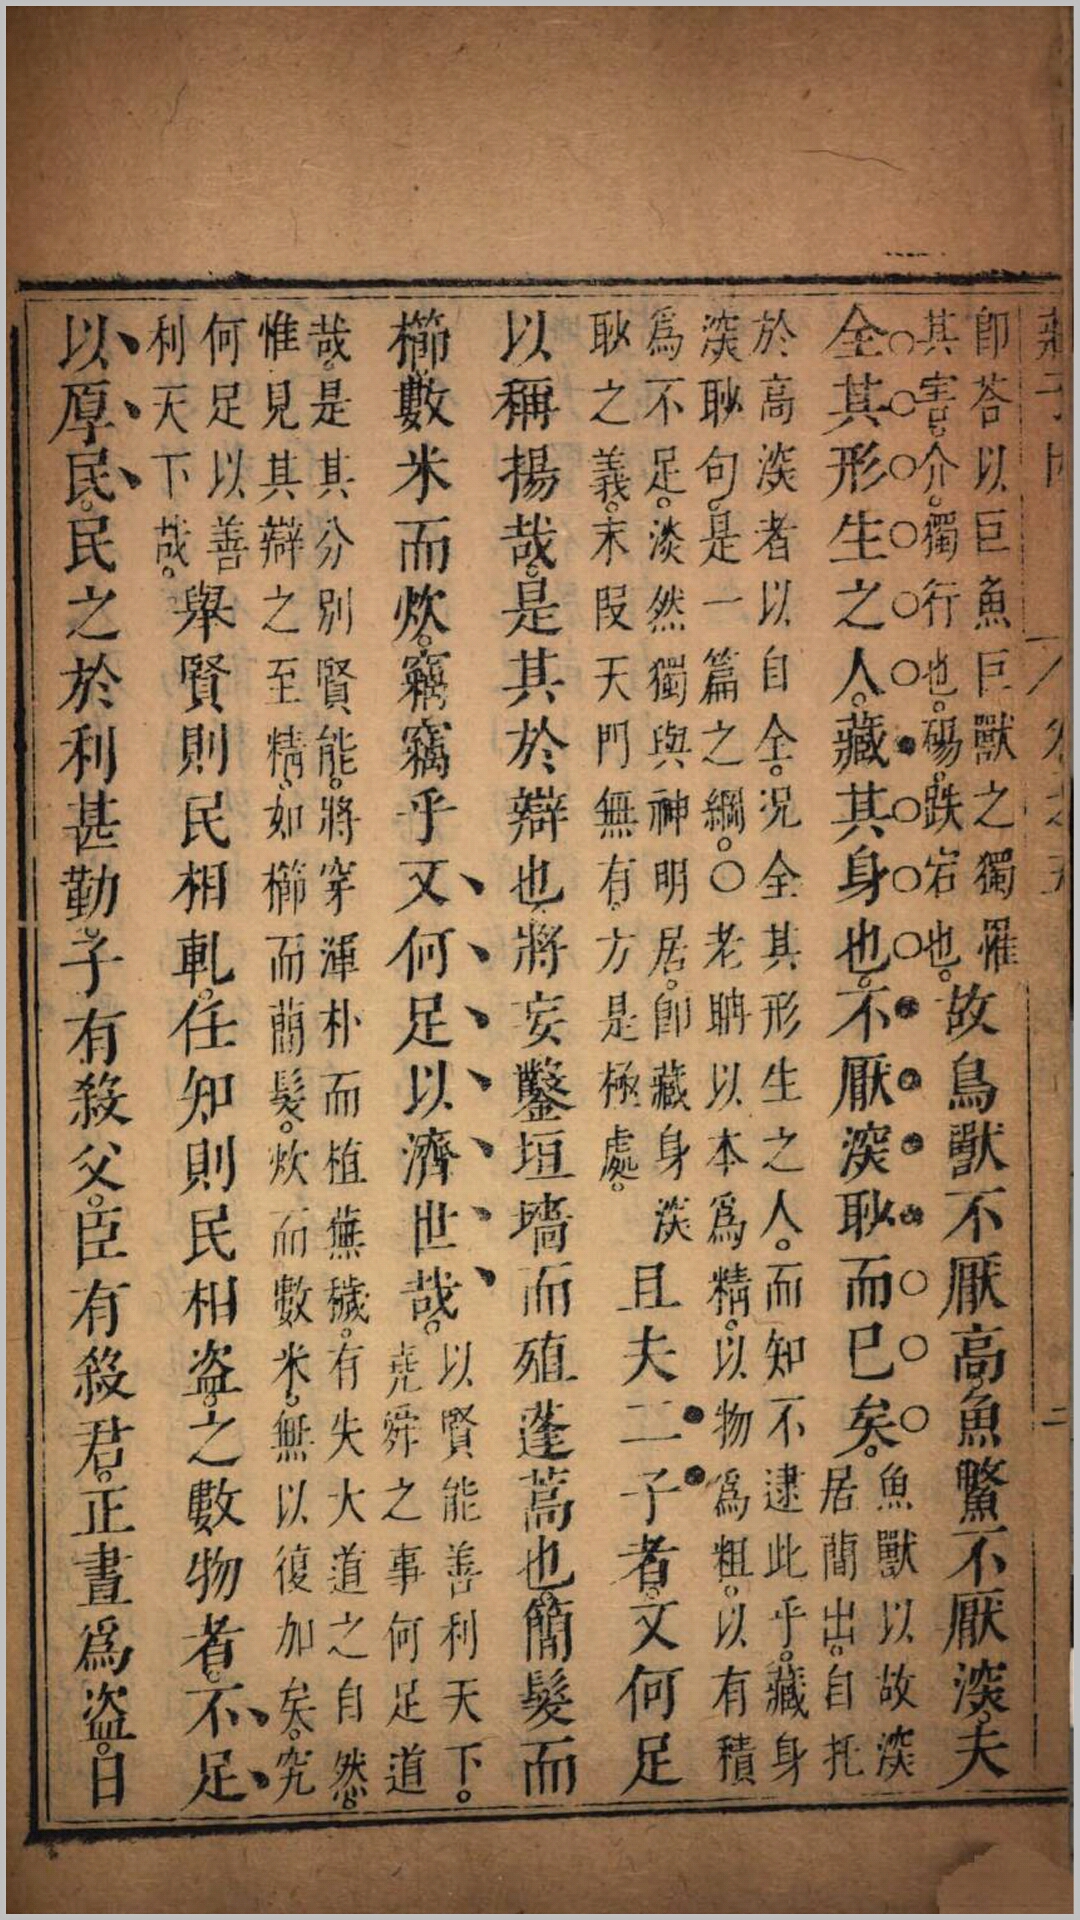 卷之五 二
即荅以巨魚巨獸之獨罹
其害。介。獨行也。碭。跌宕也。
故鳥獸不厭高。魚鱉不厭深。夫
全其形生之人。藏其身也。不厭深眇而已矣。
魚獸以故深
居簡出。自托
於高深者以自全。况全其形生之人。而知不逮此乎。藏身
深眇句。是一篇之綱。〇老聃以本爲精。以物爲粗。以有積
爲不足。淡然獨與神明居。卽藏身深
眇之義。末段天門無有。方是極處。
且夫二子者。又何足
以稱揚哉。是其於辯也。將妄鑿垣墻而殖蓬蒿也。簡髮而
櫛。數米而炊。竊竊乎又何足以濟世哉。
以賢能善利天下。
堯舜之事何足道
哉。是其分別賢能。將穿渾朴而植蕪穢。有失大道之自然。
惟見其辯之至精。如櫛而簡髮。炊而數米。無以復加矣。究
何足以善
利天下哉。
舉賢則民相軋。任知則民相盜。之數物者。不足
以厚民。民之於利甚勤。子有殺父。臣有殺君。正晝爲盜。日